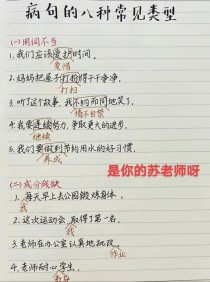 病句的八种常见类型
(一)用词不当
1.我们应该爱护时间。
爱惜
2.妈妈把屋子打扮得干干净净。
打扫
3.听了这个故事,我不约而同地笑了。
情不自禁
4.我要连续努力,争取更大的进步。
继续
5.我们要做到节约用水的好习惯。
养成
是你的苏老师呀
(二)成分残缺
1.每天早上去公园锻炼身体。
我
2.这次运动会,取得了第一名。
我
3.老师在办公室认真地批改。
作业
4.老师耐心学生。
教育